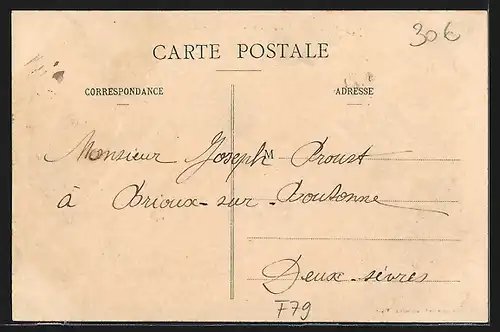 30€
CARTE POSTALE
CORRESPONDANCE
ADRESSE
M
Monsieur Joseph Proust
à Brioux-sur-Boutonne
Deux-sèvres
F79